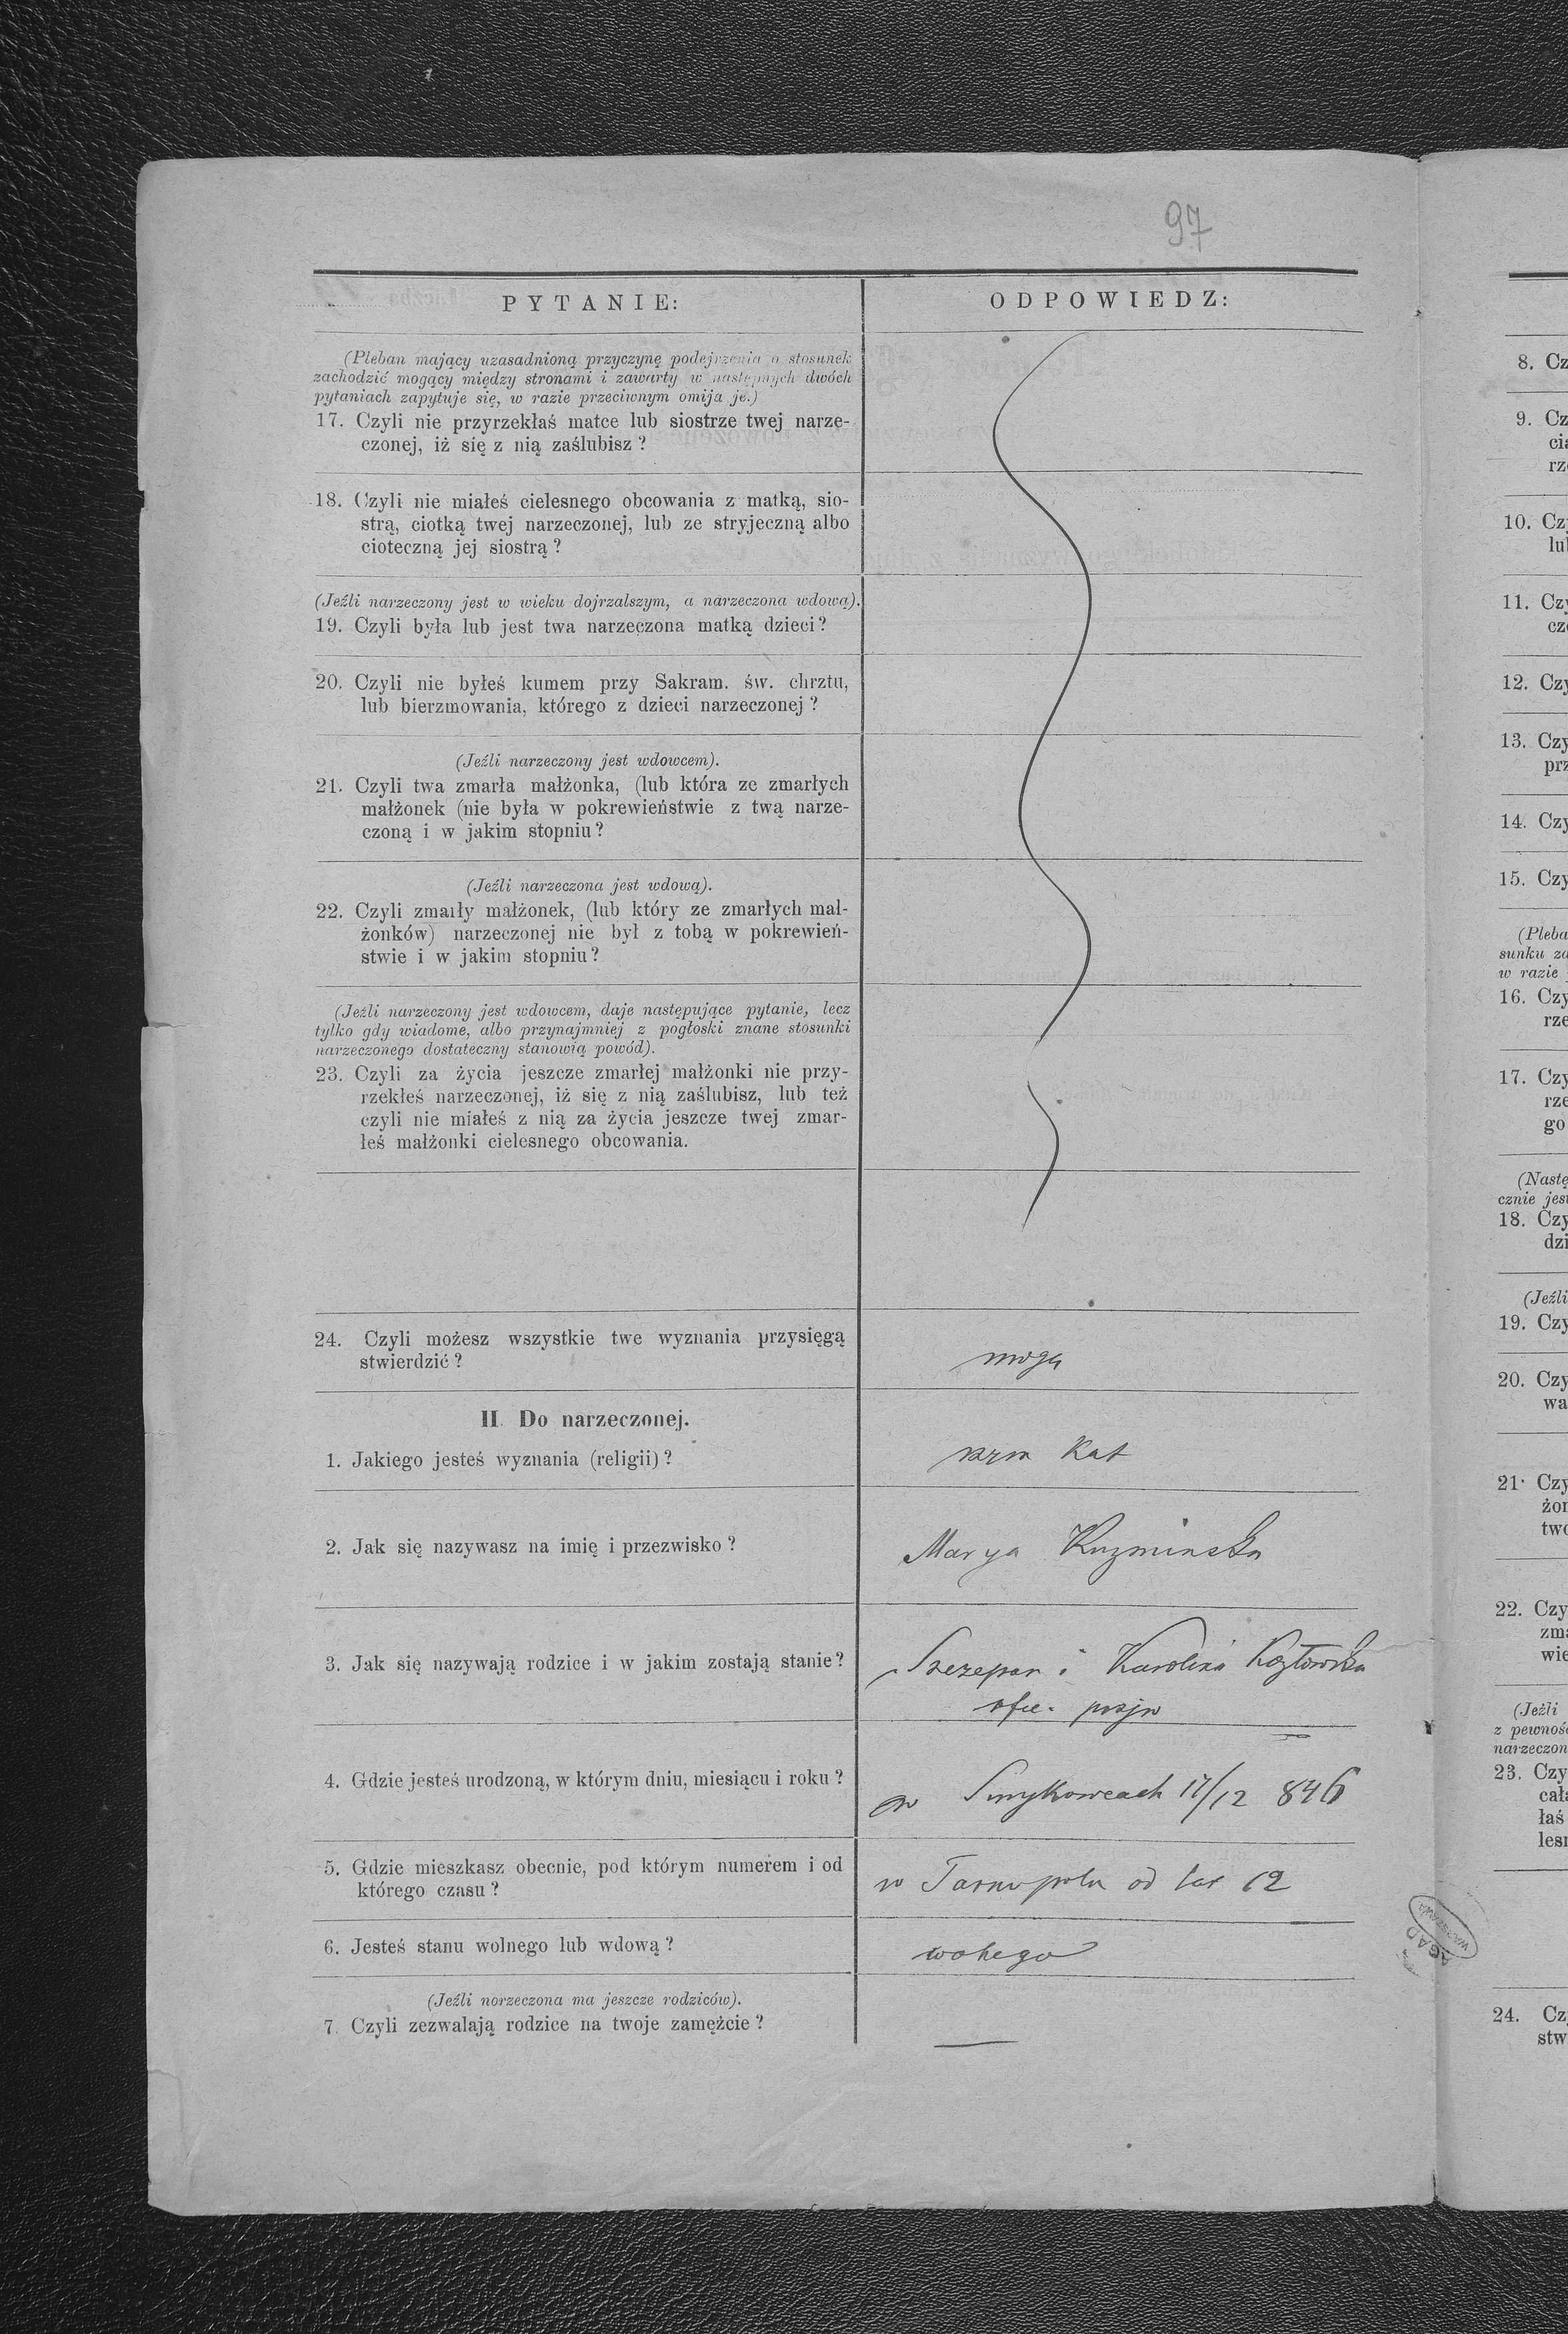 97
PYTANIE:
ODPOWIEDZ:
(Pleban mający uzasadnioną przyczynę podejrzenia o stosunek
zachodzić mogący między stronami i zawarty w następnych dwóch
pytaniach zapytuje się, w razie przeciwnym omija je.)
17. Czyli nie przyrzekłaś matce lub siostrze twej narze-
czonej, iż się z nią zaślubisz?
18. Czyli nie miałeś cielesnego obcowania z matką, sio-
strą, ciotką twej narzeczonej, lub ze stryjeczną albo
cioteczną jej siostrą?
(Jeźli narzeczony jest w wieku dojrzalszym, a narzeczona wdową).
19. Czyli była lub jest twa narzeczona matką dzieci?
20. Czyli nie byłeś kumem przy Sakram. św. chrztu,
lub bierzmowania, którego z dzieci narzeczonej?
(Jeźli narzeczony jest wdowcem).
21. Czyli twa zmarła małżonka, (lub która ze zmarłych
małżonek (nie była w pokrewieństwie z twą narze-
czoną i w jakim stopniu?
(Jeźli narzeczona jest wdową).
22. Czyli zmarły małżonek, (lub który ze zmarłych mał-
żonków) narzeczonej nie był z tobą w pokrewień-
stwie i w jakim stopniu?
(Jeźli narzeczony jest wdowcem, daje następujące pytanie, lecz
tylko gdy wiadome, albo przynajmniej z pogłoski znane stosunki
narzeczonego dostateczny stanowią powód).
23. Czyli za życia jeszcze zmarłej małżonki nie przy-
rzekłeś narzeczonej, iż się z nią zaślubisz, lub też
czyli nie miałeś z nią za życia jeszcze twej zmar-
łeś małżonki cielesnego obcowania.
24. Czyli możesz wszystkie twe wyznania przysięgą
stwierdzić?
mogę
II. Do narzeczonej.
1. Jakiego jesteś wyznania (religii)?
rzm Kat
2. Jak się nazywasz na imię i przezwisko?
Marya Kuzminska
3. Jak się nazywają rodzice i w jakim zostają stanie?
Szczepan i Karolina Kozłowska
4. Gdzie jesteś urodzoną, w którym dniu, miesiącu i roku?
w Smykowcach 17/12 846
5. Gdzie mieszkasz obecnie, pod którym numerem i od
którego czasu?
w Tarnopolu od lat 12
6. Jesteś stanu wolnego lub wdową?
wolnego
(Jeźli norzeczona ma jeszcze rodziców).
7. Czyli zezwalają rodzice na twoje zamężcie?
AGAD
WARSZAWA
8. Cz
9. Cz
cia
rze
10. Cz
lub
11. Czy
cze
12. Czy
13. Czy
prz
14. Czy
15. Czy
(Pleba
sunku za
w razie
16. Czy
rze
17. Czy
rze
go
(Nastę
cznie jes
18. Czy
dzi
(Jeźli
19. Czy
20. Czy
wa
21. Czy
żon
two
22. Czy
zma
wie
(Jeźli
z pewnoś
narzeczon
23. Czy
cała
łaś
lesn
24. Cz
stw